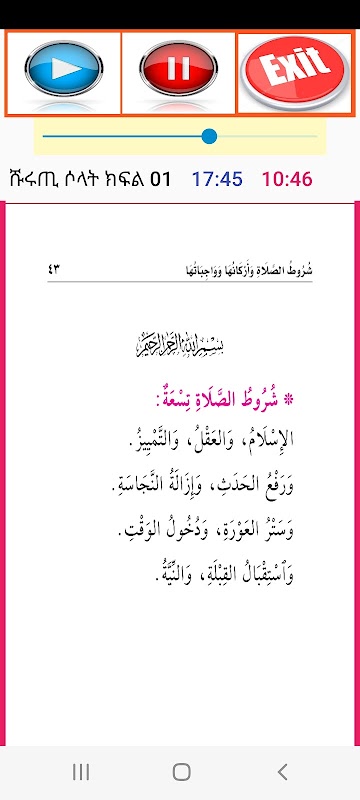 Exit
ሹሩጢ ሶላት ክፍል 01 17:45 10:46
شُرُوطُ الصَّلَاةِ وَأَرْكَانُهَا وَوَاجِبَاتُهَا ٤٣
بِسْمِ اللهِ الرَّحْمٰنِ الرَّحِيمِ
* شُرُوطُ الصَّلَاةِ تِسْعَةٌ:
الإِسْلَامُ، وَالعَقْلُ، وَالتَّمْيِيزُ.
وَرَفْعُ الحَدَثِ، وَإِزَالَةُ النَّجَاسَةِ.
وَسَتْرُ العَوْرَةِ، وَدُخُولُ الوَقْتِ.
وَٱسْتِقْبَالُ القِبْلَةِ، وَالنِّيَّةُ.